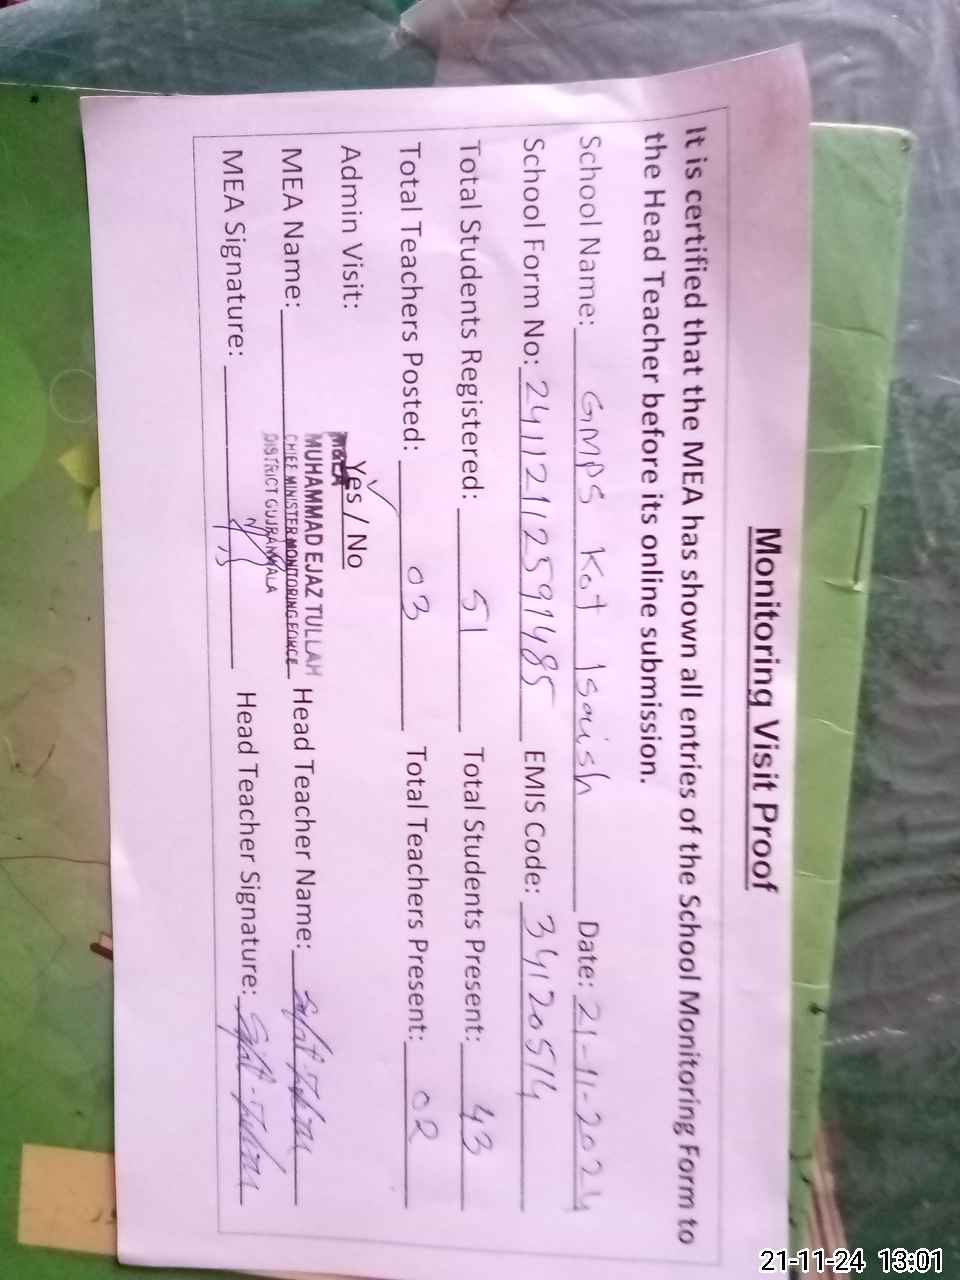 Monitoring Visit Proof
It is certified that the MEA has shown all entries of the School Monitoring Form to
the Head Teacher before its online submission.
School Name: GMPS Kot Isaish Date: 21-11-2024
School Form No: 241121125991485 EMIS Code: 34120514
Total Students Registered: 51 Total Students Present: 43
Total Teachers Posted: 03 Total Teachers Present: 02
Admin Visit: Yes / No
MUHAMMAD EJAZ TULLAH
MEA Name: CHIEF MINISTER MONITORING FORCE Head Teacher Name:
DISTRICT GUJRANWALA
MEA Signature: Head Teacher Signature:
21-11-24 13:01